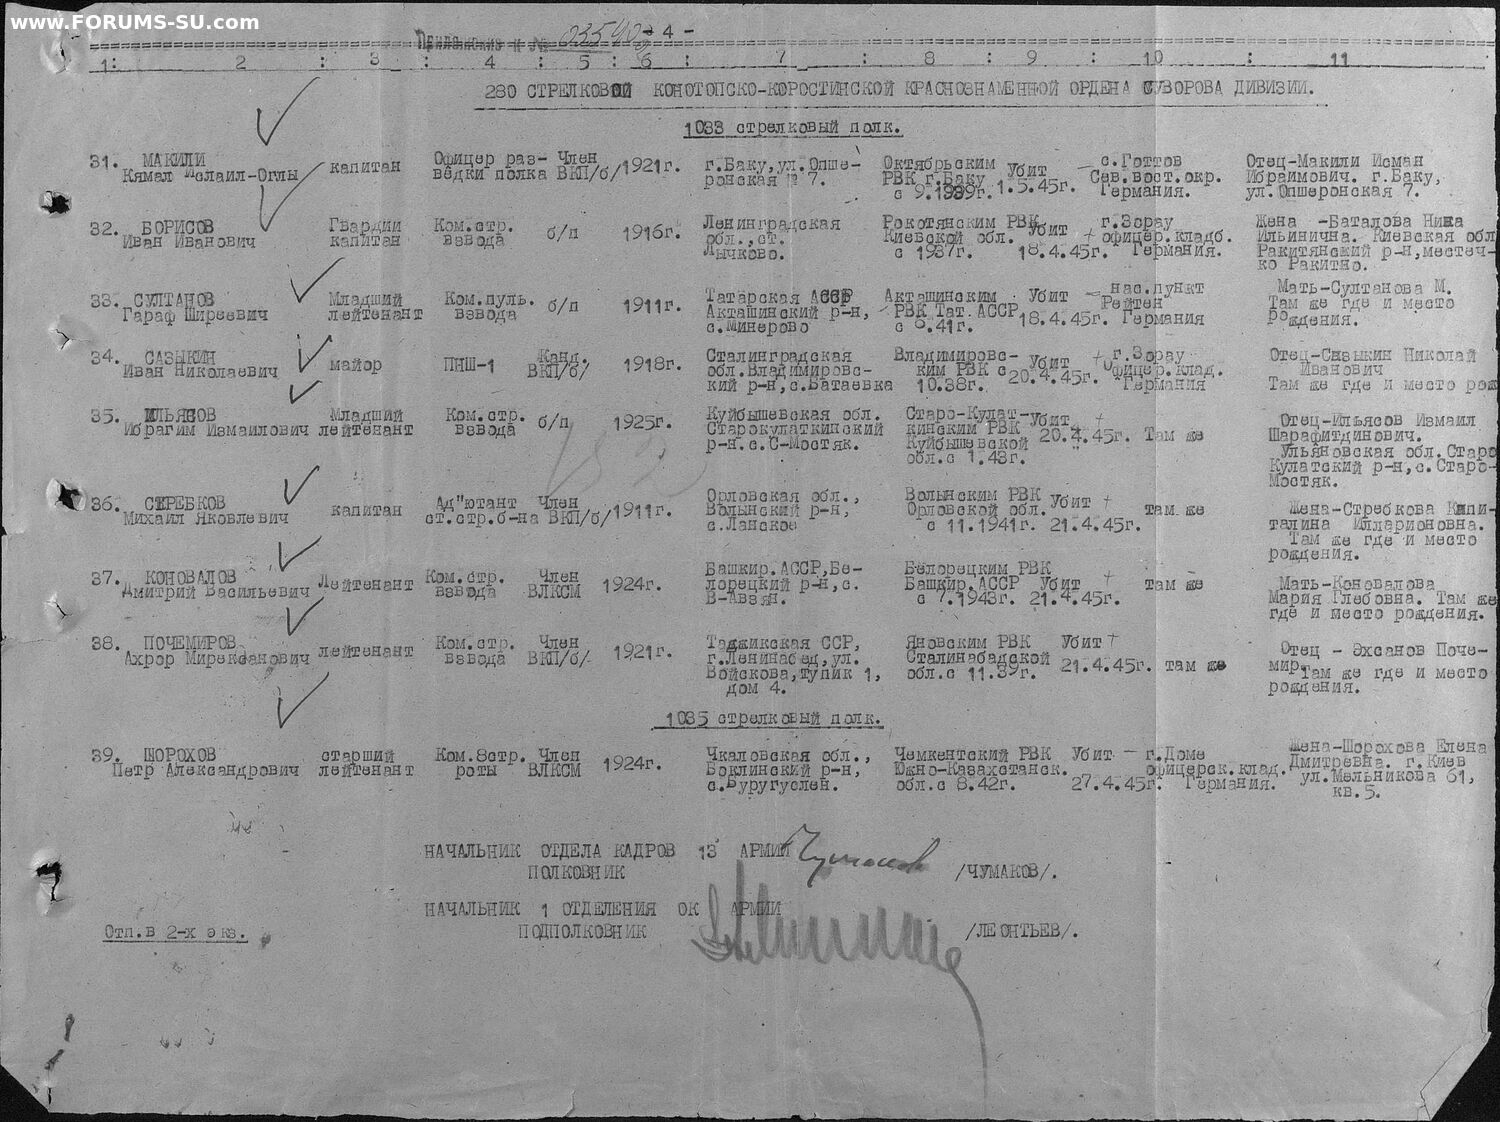 www.FORUMS-SU.com
- 4 -
1: 2 : 3 : 4 : 5 : 6 : 7 : 8 : 9 : 10 : 11
280 СТРЕЛКОВОЙ КОНОТОПСКО-КОРОСТИНСКОЙ КРАСНОЗНАМЕННОЙ ОРДЕНА СУВОРОВА ДИВИЗИИ.
1033 стрелковый полк.
31. МАКИЛИ Кямал Ислаил-Оглы капитан Офицер раз-ведки полка Член ВКП/б/ 1921г. г.Баку,ул.Опше-ронская № 7. Октябрьским РВК г.Баку с 9.1939г. Убит 1.5.45г. с.Готтов Сев.вост.окр. Германия. Отец-Макили Исман Ибраимович. г.Баку, ул.Опшеронская 7.
32. БОРИСОВ Иван Иванович Гвардии капитан Ком.стр. взвода б/п 1916г. Ленинградская обл.,ст. Лычково. Рокотянским РВК Киевской обл. с 1937г. Убит 18.4.45г. г.Зорау офицер.кладб. Германия. Жена -Баталова Нина Ильинична. Киевская обл Ракитянский р-н,местеч-ко Ракитно.
33. СУЛТАНОВ Гараф Ширеевич Младший лейтенант Ком.пуль. взвода б/п 1911г. Татарская АССР Акташинский р-н, с.Минерово Акташинским РВК Тат.АССР с 8.41г. Убит 18.4.45г. нас.пункт Рейтен Германия Мать-Султанова М. Там же где и место рождения.
34. САЗЫКИН Иван Николаевич майор ПНШ-1 Канд. ВКП/б/ 1918г. Сталинградская обл.Владимировс-кий р-н,с.Батаевка Владимировс-ким РВК с 10.38г. Убит 20.4.45г. г.Зорау Офицер.клад. Германия Отец-Сазыкин Николай Иванович Там же где и место рож
35. ИЛЬЯСОВ Ибрагим Измаилович Младший лейтенант Ком.стр. взвода б/п 1925г. Куйбышевская обл. Старокулаткинский р-н.с.С-Мостяк. Старо-Кулат-кинским РВК Куйбышевской обл.с 1.43г. Убит 20.4.45г. Там же Отец-Ильясов Измаил Шарафитдинович. Ульяновская обл.Старо Кулатский р-н,с.Старо-Мостяк.
36. СТРЕБКОВ Михаил Яковлевич капитан Ад"ютант ст.стр.б-на Член ВКП/б/ 1911г. Орловская обл., Волынский р-н, с.Ланское Волынским РВК Орловской обл. с 11.1941г. Убит 21.4.45г. там же Жена-Стребкова Капи-талина Илларионовна. Там же где и место рождения.
37. КОНОВАЛОВ Дмитрий Васильевич Лейтенант Ком.стр. взвода Член ВЛКСМ 1924г. Башкир.АССР,Бе-лорецкий р-н,с. В-Авзян. Белорецким РВК Башкир.АССР с 7.1943г. Убит 21.4.45г. там же Мать-Коновалова Мария Глебовна. Там же где и место рождения.
38. ПОЧЕМИРОВ Ахрор Мирексанович лейтенант Ком.стр. взвода Член ВКП/б/ 1921г. Таджикская ССР, г.Ленинабад,ул. Войскова,тупик 1, дом 4. Яновским РВК Сталинабадской обл.с 11.39г. Убит 21.4.45г. там же Отец - Эхсанов Поче-мир. Там же где и место рождения.
1035 стрелковый полк.
39. ШОРОХОВ Петр Александрович старший лейтенант Ком.8стр. роты Член ВЛКСМ 1924г. Чкаловская обл., Боклинский р-н, с.Буругуслен. Чемкентский РВК Южно-Казахстанск. обл.с 8.42г. Убит 27.4.45г. г.Доме офицерск.клад. Германия. Жена-Шорохова Елена Дмитревна. г.Киев ул.Мельникова 61, кв.5.
НАЧАЛЬНИК ОТДЕЛА КАДРОВ 13 АРМИИ
ПОЛКОВНИК /ЧУМАКОВ/.
НАЧАЛЬНИК 1 ОТДЕЛЕНИЯ ОК АРМИИ
ПОДПОЛКОВНИК /ЛЕОНТЬЕВ/.
Отп.в 2-х экз.